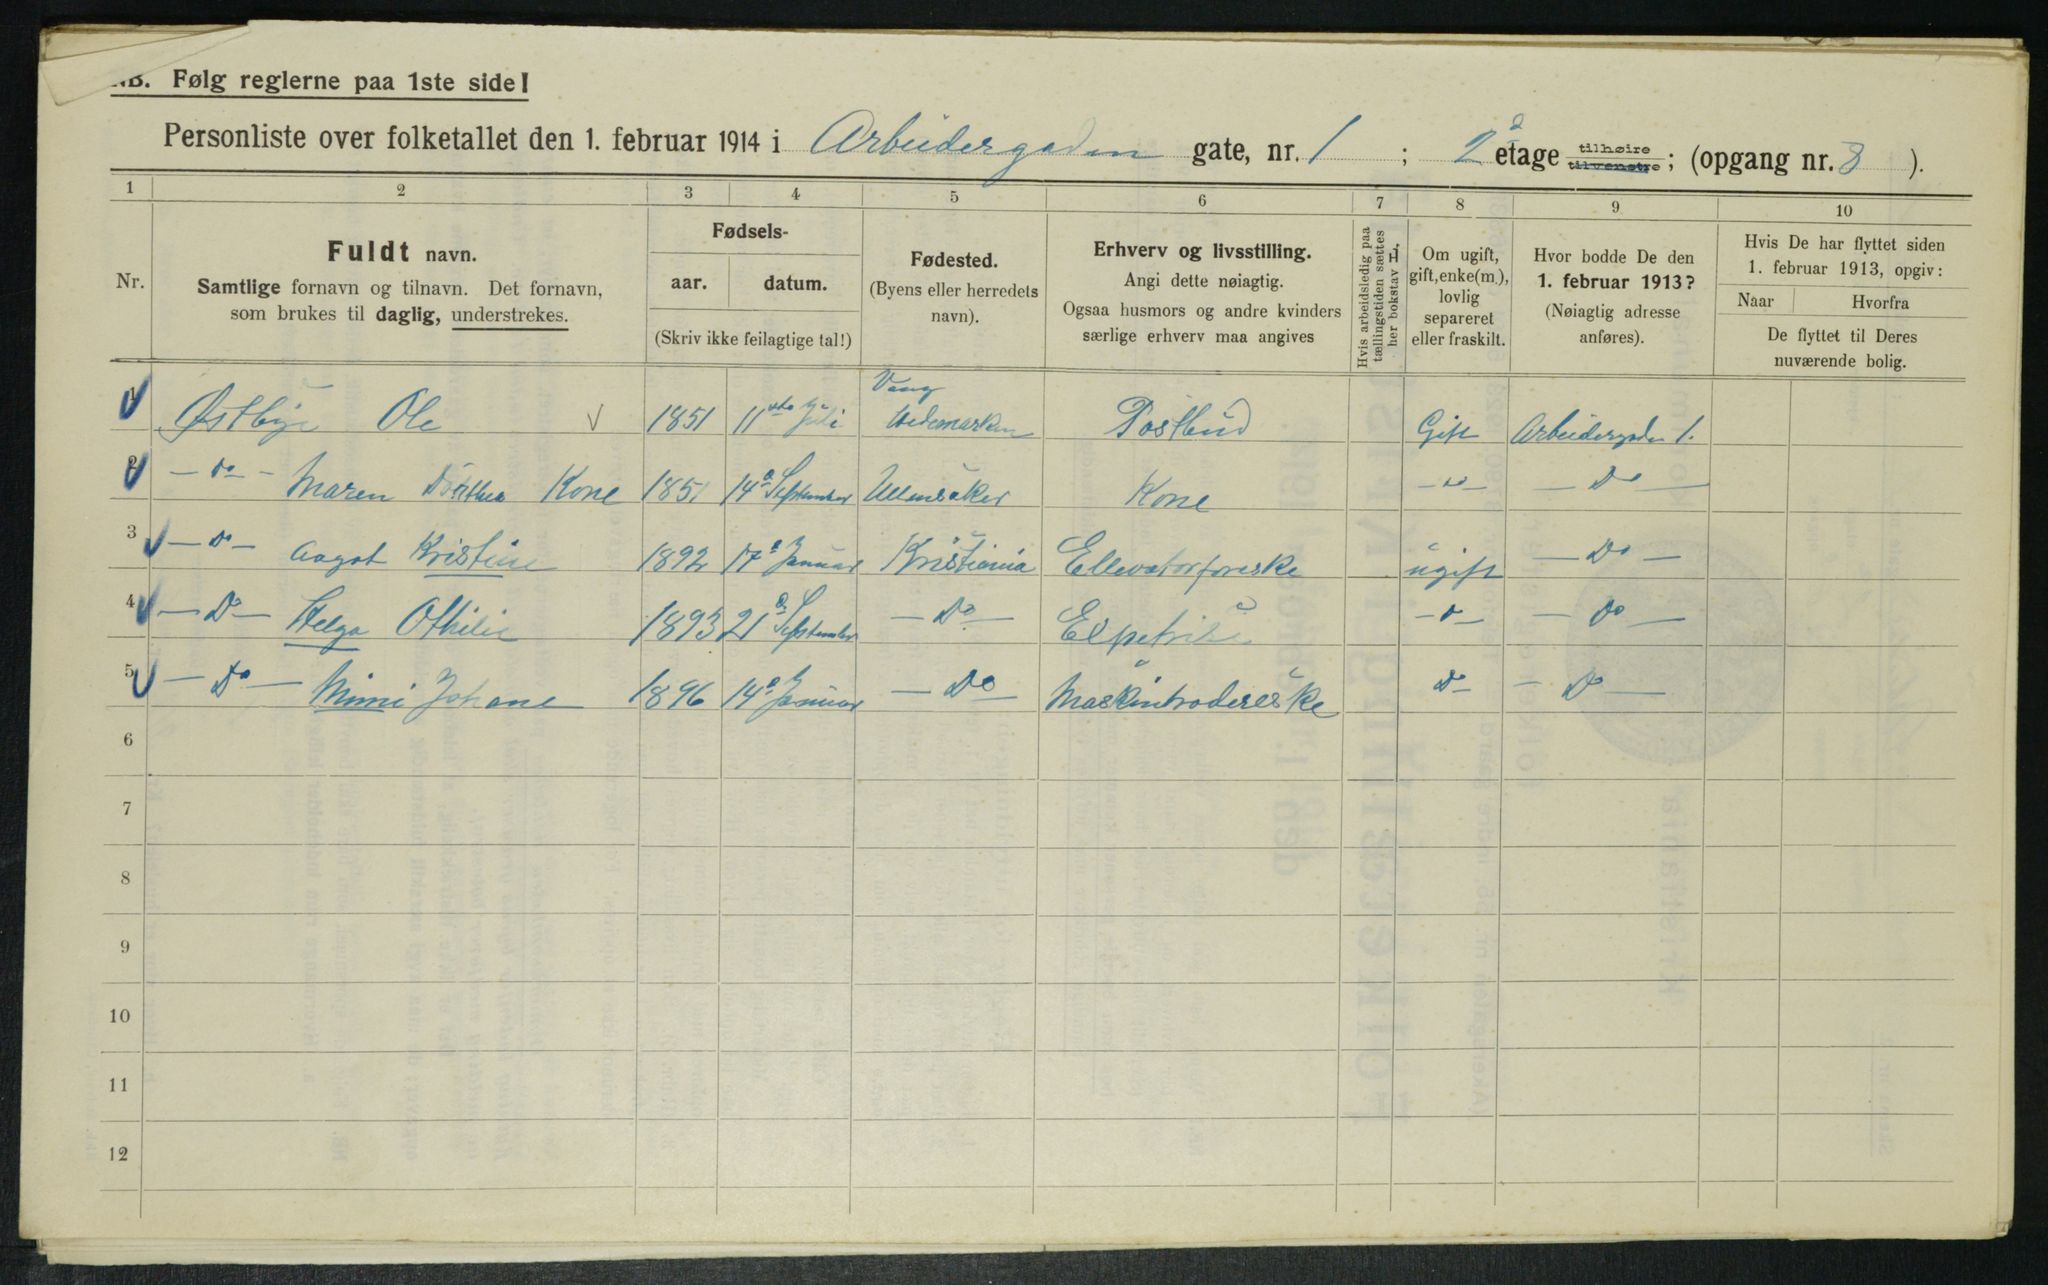 NB. Følg reglerne paa 1ste side!
Personliste over folketallet den 1. februar 1914 i Arbeidergaden gate, nr. 1 ; 2d etage tilhøire tilvenstre ; (opgang nr. 8 ).
1 2 3 4 5 6 7 8 9 10
Nr.
Fuldt navn.
Samtlige fornavn og tilnavn. Det fornavn,
som brukes til daglig, understrekes.
Fødsels-
aar. datum.
(Skriv ikke feilagtige tal!)
Fødested.
(Byens eller herredets
navn).
Erhverv og livsstilling.
Angi dette nøiagtig.
Ogsaa husmors og andre kvinders
særlige erhverv maa angives
Hvis arbeidsledig paa
tællingstiden sættes
her bokstav L.
Om ugift,
gift, enke(m.),
lovlig
separeret
eller fraskilt.
Hvor bodde De den
1. februar 1913?
(Nøiagtig adresse
anføres).
Hvis De har flyttet siden
1. februar 1913, opgiv:
Naar Hvorfra
De flyttet til Deres
nuværende bolig.
1 Østbye Ole 1851 11te Juli Vang Hedemarken Postbud Gift Arbeidergaden 1.
2 — do — Maren Dorthea Kone 1851 14d September Ullensaker Kone — do — — Do —
3 — do — Aagot Kristine 1892 17d Januar Kristiania Ellevatorføreske ugift — Do —
4 — Do — Helga Othilie 1893 21de September — Do — — do — — Do —
5 — Do — Mimi Johane 1896 14d Januar — Do — Maskinbrodereske Do — — Do —
6
7
8
9
10
11
12